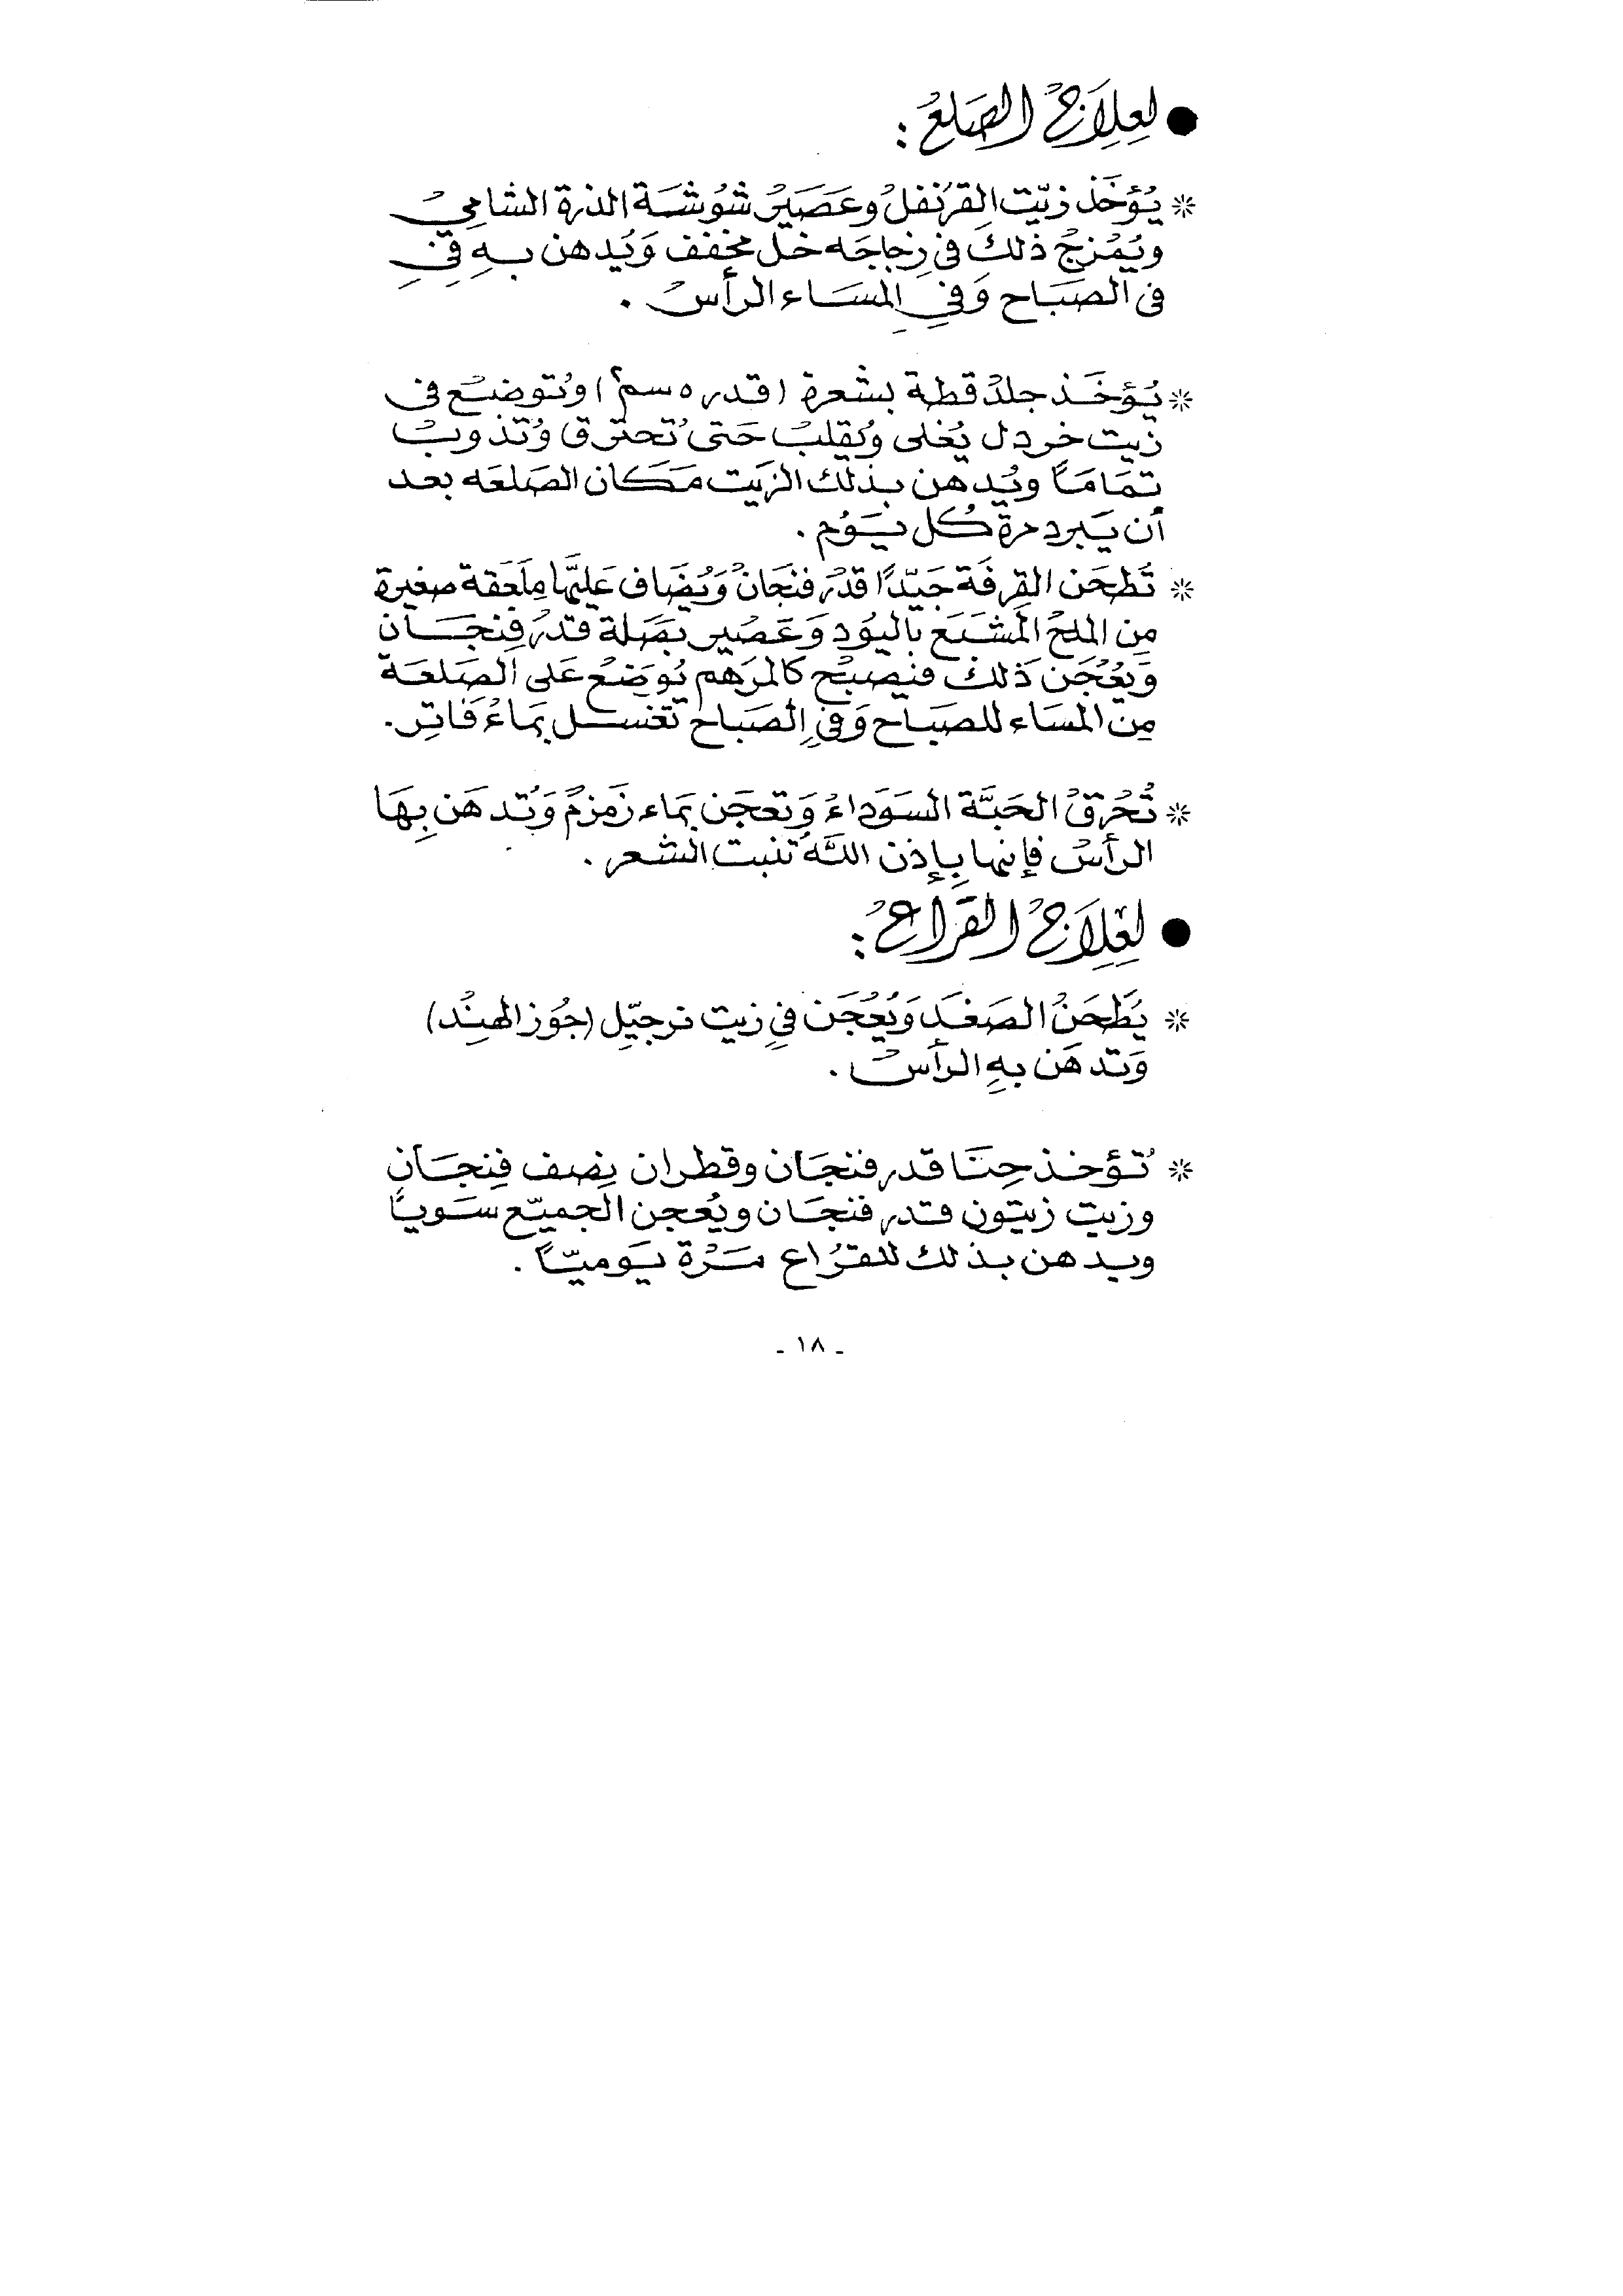 ● لعِلَاجُ الصَلعُ :
* يُؤخَذ زيّت القرُنفلُ وعَصَيرُ شوُشَة الذرة الشامِيُ
ويَمُزجُ ذلكَ فى زِجاجَه خل مخفف وَيُدهن بهِ فِي
فى الصَبَاح وَفيِ المسَاء الرأسُ .
* يُؤخَذ جلدُ قطة بشعرة (قدر ٥ سم٢) وتُوضَعُ فى
زيت خردل يُغلى وُيقلبُ حَتىُ تحترق وُتذوبُ
تمَامَاً ويُدهن بذلك الزَيت مَكان الصَلعَه بعد
أن يَبرد مرة كُل يَوُم .
* تُطحَن القِرفَة جَيّدًا قدُر فنجَانُ وَيُضَاف عَليهَا مِلعَقة صغيرة
مِن الملحُ المشَبَع باليوُد وَعَصُير بَصَلة قدُر فِنجَان
وَيعُجَن ذَلكَ فنيصبحُ كالمرَهم يُوَضعُ عَلى الصَلعَة
مِن المسَاء للصَبَاح وَفيِ الصَبَاحُ تغسل بمَاءُ فَاتِر .
* تُحُرقُ الحَبَّة السَوَداءُ وَتعجَن بمَاء زَمزمُ وَتُدهَن بِهَا
الرأسُ فإنها بِإِذن اللَّهُ تنبت الشعر .
● لعِلَاجُ القَرَاعُ :
* يُطحَنُ الصَغدَ وَيُعُجَن فيِ زيت نرجيّل (جُوَز الهنِدُ)
وَتدهَن بهِ الرأسُ .
* تُؤخذ حِنَا قدر فنجَان وقطران نِصف فِنجَان
وزيت زيتون قدر فنجَان ويُعجن الجميّع سَوياً
ويدهن بذلك للقرُاع مَرُة يَوميّاً .
- ١٨ -